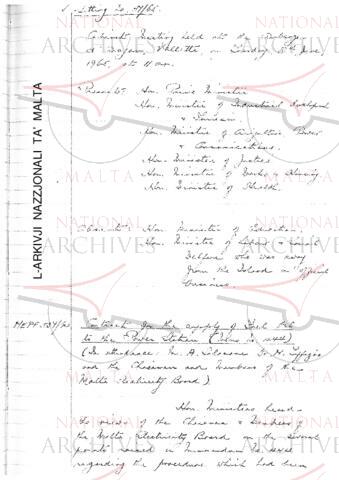 Sitting No. 57/65.
Cabinet Meeting held at the Auberge
d'Aragon, Valletta, on Tuesday
1965, at 11 a.m.
Present: Hon. Prime Minister
Hon. Minister of Industrial Development
& Tourism.
Hon. Minister of Agriculture, Power
& Communications.
Hon. Minister of Justice
Hon. Minister of Works & Housing
Hon. Minister of Health.
Absent: Hon. Minister of Education.
Hon. Minister of Labour & Social
Welfare who was away
from the Island on official
business.
MEPF.
Contract for the supply of Fuel Oil
to the Power Station
(In attendance: Mr. A.
and the Chairman and Members of the
Malta Electricity Board)
Hon. Ministers heard
the views of the Chairman & Members of
the Malta Electricity Board on the several
points raised in Memorandum No.
regarding the procedure which had been
L-ARKIVJI NAZZJONALI TA' MALTA
NATIONAL
ARCHIVES
MALTA